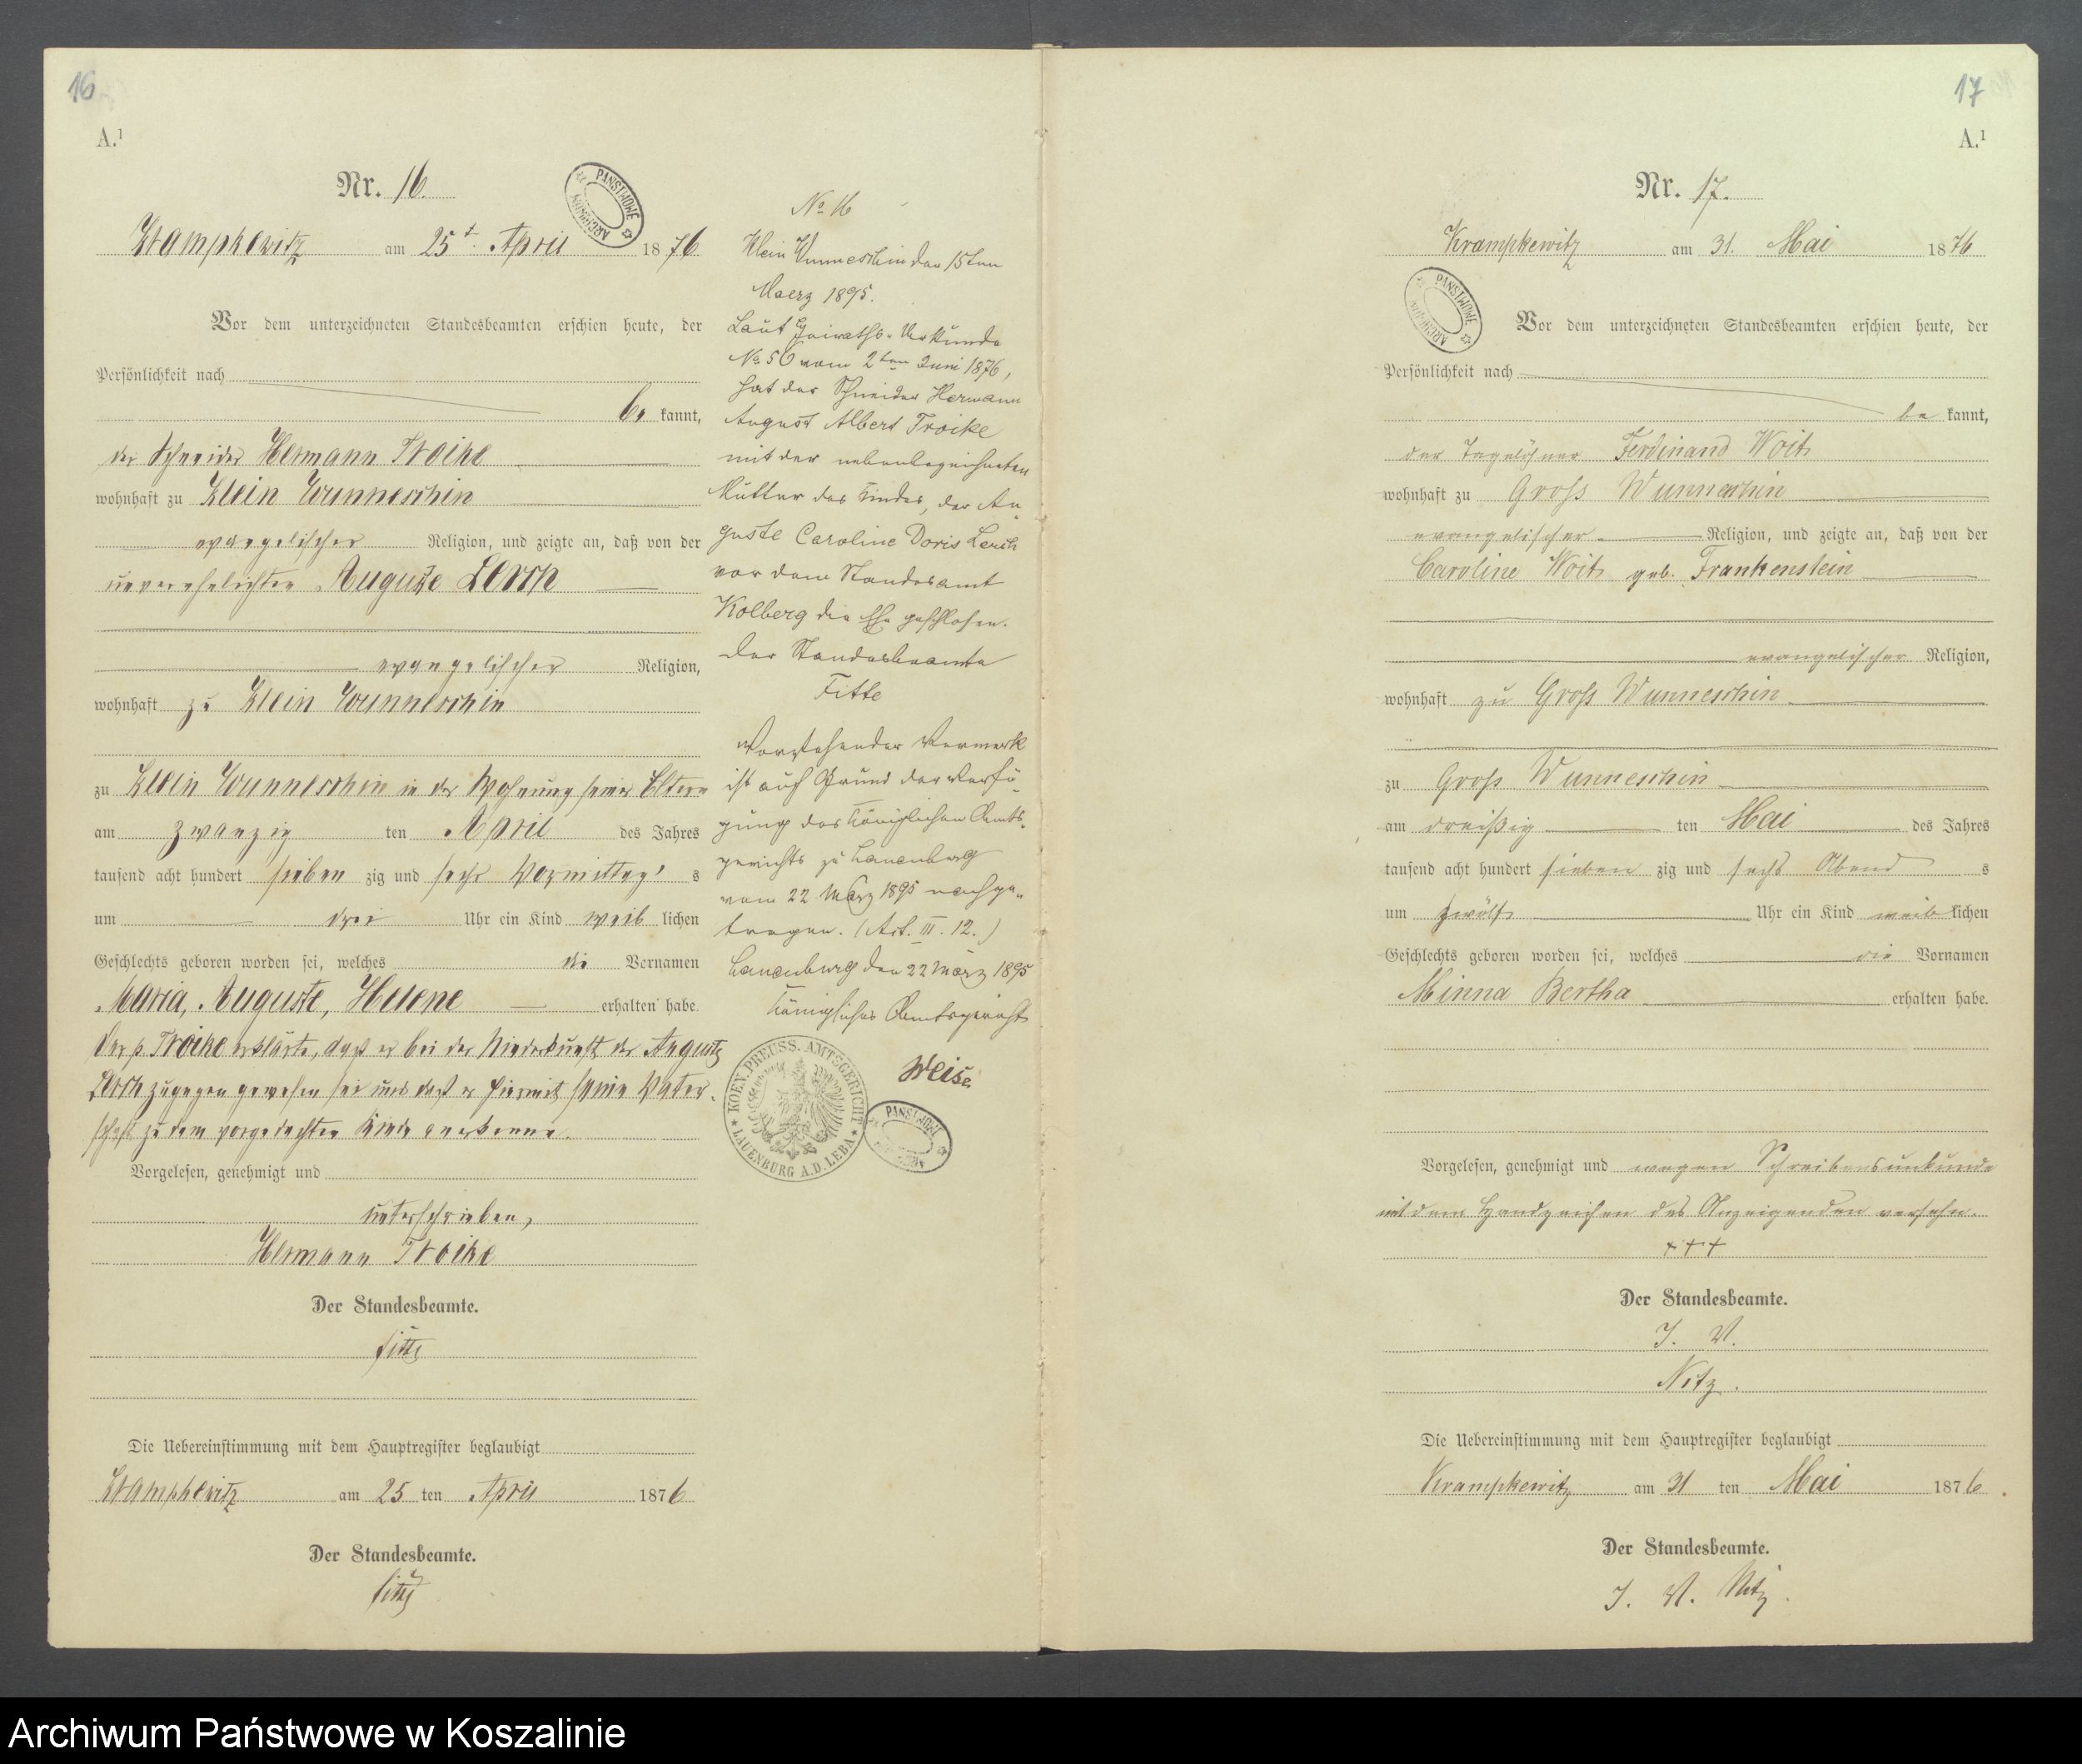 16
A.¹
Nr. 16.
ARCHIWUM PAŃSTWOWE
Krampkewitz am 25t. April 1876
Vor dem unterzeichneten Standesbeamten erschien heute, der
Persönlichkeit nach
be kannt,
der Schneider Hermann Troike
wohnhaft zu Klein Wunneschin
evangelischer Religion, und zeigte an, daß von der
unverehelichten Auguste Lerch
evangelischer Religion,
wohnhaft zu Klein Wunneschin
zu Klein Wunneschin in der Wohnung seiner Eltern
am zwanzig ten April des Jahres
tausend acht hundert sieben zig und sechs Vormittag s
um drei Uhr ein Kind weib lichen
Geschlechts geboren worden sei, welches die Vornamen
Maria, Auguste, Helene erhalten habe.
Der p. Troike erklärte, daß er bei der Niederkunft der Auguste
Lerch zugegen gewesen sei und daß er hiermit seine Vater-
schaft zu dem vorgedachten Kinde anerkenne.
Vorgelesen, genehmigt und
unterschrieben,
Hermann Troike
Der Standesbeamte.
Fitte
Die Uebereinstimmung mit dem Hauptregister beglaubigt
Krampkewitz am 25 ten April 1876
Der Standesbeamte.
Fitte
No 16
Klein Wunneschin den 15ten
Maerz 1895.
Laut Heiraths-Urkunde
No 56 vom 2ten Juni 1876,
hat der Schneider Hermann
August Albert Troike
mit der nebenbezeichneten
Mutter des Kindes, der Au-
guste Caroline Doris Lerch
vor dem Standesamt
Kolberg die Ehe geschlossen.
Der Standesbeamte
Fitte
Vorstehender Vermerk
ist auf Grund der Verfü-
gung des Königlichen Amts-
gerichts zu Lauenburg
vom 22 März 1895 nachge-
tragen. (Art. III. 12.)
Lauenburg den 22 März 1895
Königliches Amtsgericht
Weise
KOEN. PREUSS. AMTSGERICHT
LAUENBURG A.D. LEBA
17
A.¹
Nr. 17.
Krampkewitz am 31. Mai 1876
ARCHIWUM PAŃSTWOWE
Vor dem unterzeichneten Standesbeamten erschien heute, der
Persönlichkeit nach
be kannt,
der Tagelöhner Ferdinand Woit
wohnhaft zu Gross Wunneschin
evangelischer Religion, und zeigte an, daß von der
Caroline Woit geb. Frankenstein
evangelischer Religion,
wohnhaft zu Gross Wunneschin
zu Gross Wunneschin
am dreißig ten Mai des Jahres
tausend acht hundert sieben zig und sechs Abend s
um zwölf Uhr ein Kind weib lichen
Geschlechts geboren worden sei, welches die Vornamen
Minna Bertha erhalten habe.
Vorgelesen, genehmigt und wegen Schreibensunkunde
mit dem Handzeichen des Anzeigenden versehn.
+++
Der Standesbeamte.
J. V.
Nitz.
Die Uebereinstimmung mit dem Hauptregister beglaubigt
Krampkewitz am 31 ten Mai 1876.
Der Standesbeamte.
J. V. Nitz.
Archiwum Państwowe w Koszalinie